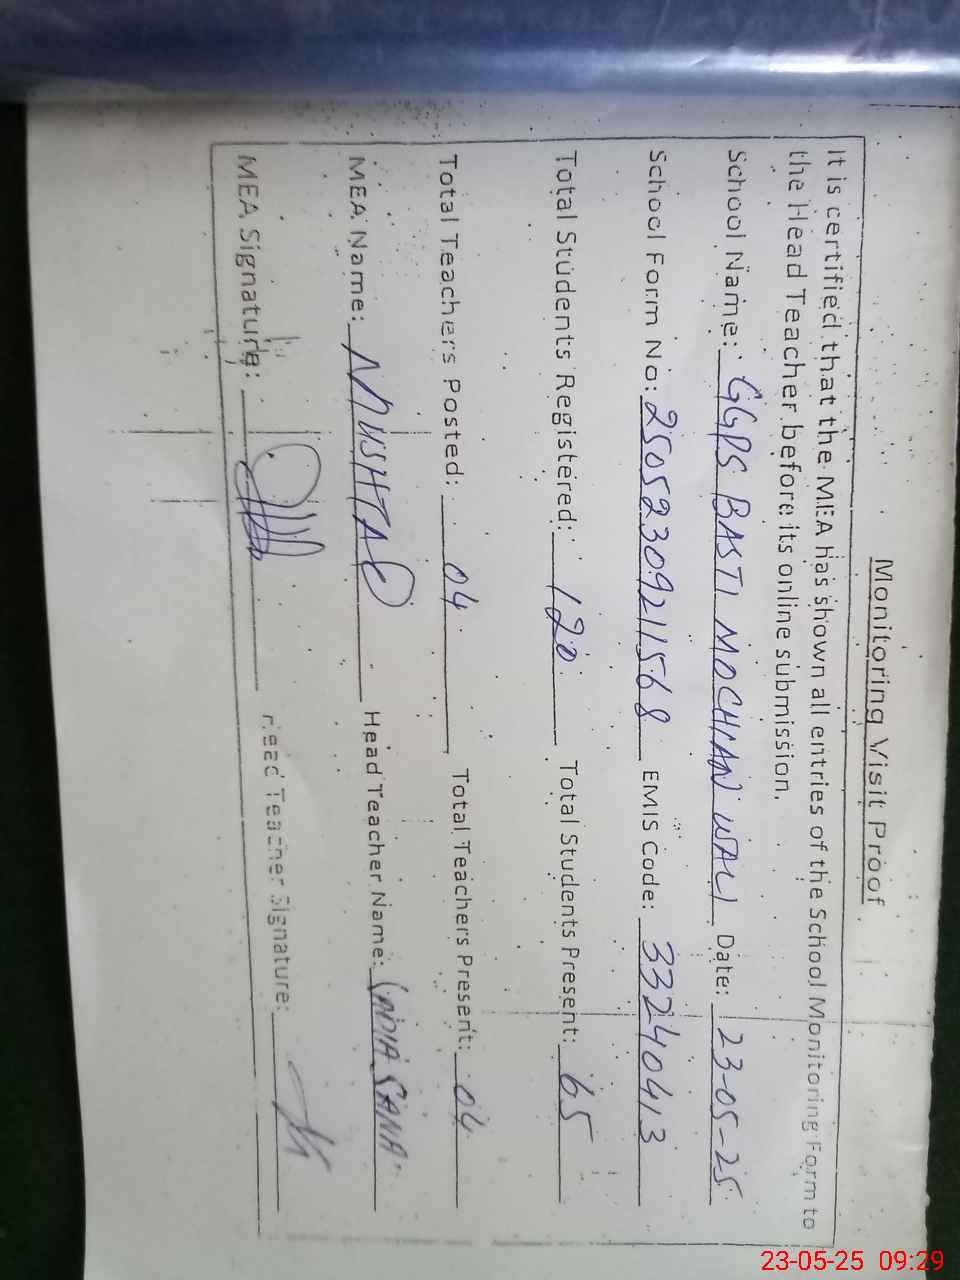 Monitoring Visit Proof
It is certified that the MEA has shown all entries of the School Monitoring Form to
the Head Teacher before its online submission.
School Name: GGPS BASTI MOCHIAN WALI Date: 23-05-25
School Form No: 25052309211568 EMIS Code: 33240413
Total Students Registered: 120 Total Students Present: 65
Total Teachers Posted: 04 Total Teachers Present: 04
MEA Name: MUSHTAQ Head Teacher Name: SANA
MEA Signature: Head Teacher Signature:
23-05-25 09:29